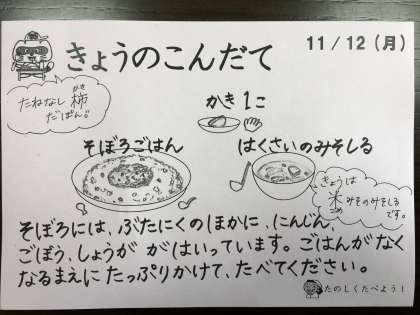 11/12(月)
きょうのこんだて
たねなし柿かき
だぽん!
かき1こ
そぼろごはん
はくさいのみそしる
きょうは
米こめみそのみそしる
です。
そぼろには、ぶたにくのほかに、にんじん、
ごぼう、しょうが がはいっています。ごはんがなく
なるまえに たっぷりかけて、たべてください。
たのしくたべよう!